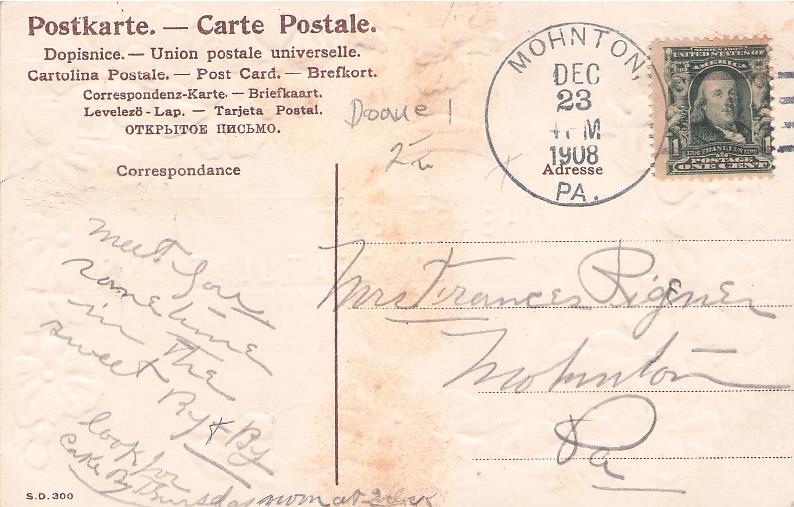 Postkarte. — Carte Postale.
Dopisnice. — Union postale universelle.
Cartolina Postale. — Post Card. — Brefkort.
Correspondenz-Karte. — Briefkaart.
Levelezö-Lap. — Tarjeta Postal.
ОТКРЫТОЕ ПИСЬМО.
Doane 1
2
MOHNTON,
DEC
23
4 PM
1908
PA.
SERIES 1902
UNITED STATES OF
AMERICA
FRANKLIN
POSTAGE
ONE CENT
Correspondance
Adresse
meet you
some time
in the
sweet By & By
look for
Cake By Thursday
at 2
Mrs Frances Rigener
Mohnton
Pa
S.D. 300